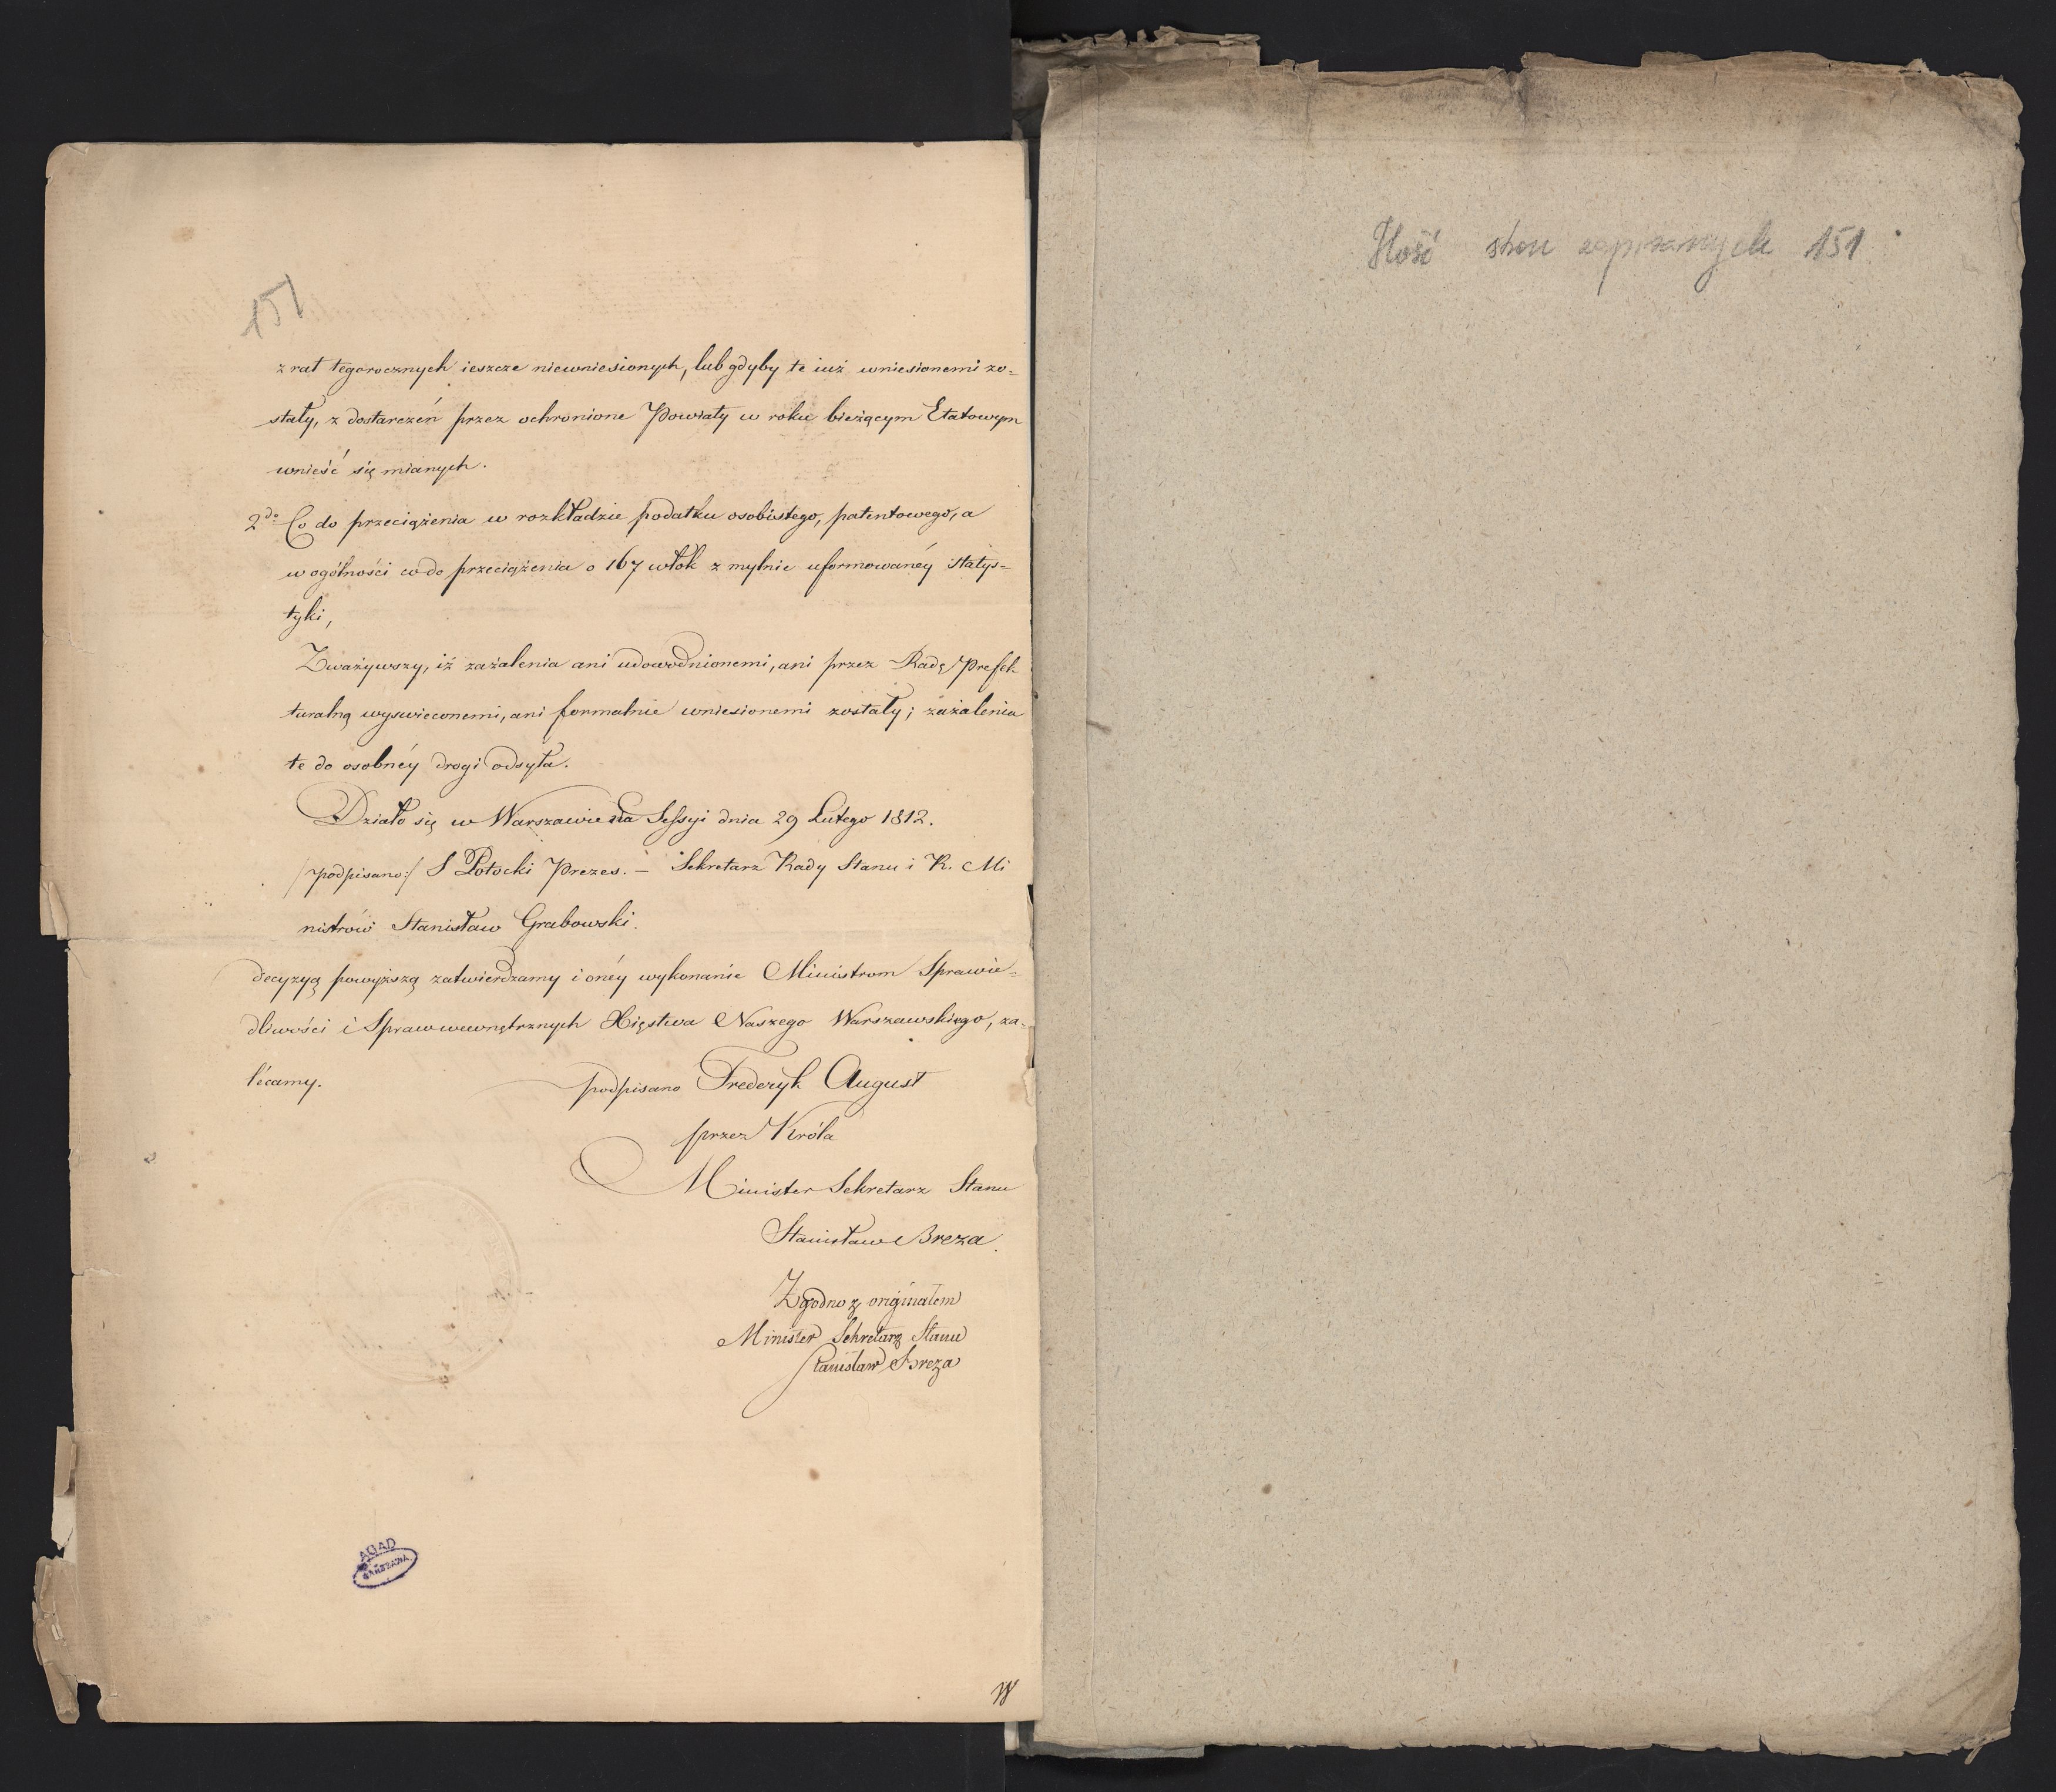 151
z rat tegorocznych ieszcze niewniesionych, lub gdyby te iuż wniesionemi zo=
stały, z dostarczeń przez ochronione Powiaty w roku bieżącym Etatowym
wnieść się mianych.
2do Co do przeciążenia w rozkładzie podatku osobistego, patentowego, a
w ogólności co do przeciążenia o 167 włok z mylnie uformowanéy Statys=
tyki,
Zważywszy, iż zażalenia ani udowodnionemi, ani przez Radę Prefek
turalną wyswieconemi, ani formalnie wniesionemi zostały; zażalenia
te do osobnéy drogi odsyła.
Działo się w Warszawie na Sessyi dnia 29 Lutego 1812.
/podpisano:/ S Potocki Prezes. – Sekretarz Rady Stanu i R. Mi
nistrów Stanisław Grabowski.
decyzyą powyższą zatwierdzamy i onéy wykonanie Ministrom Sprawie=
dliwości i Spraw wewnętrznych Xięstwa Naszego Warszawskiego, za=
lécamy.
podpisano Frederyk August
przez Króla
Minister Sekretarz Stanu
Stanisław Breza.
Zgodno z originałem
Minister Sekretarz Stanu
Stanisław Breza
AGAD
WARSZAWA
Ilość stron zapisanych 151.